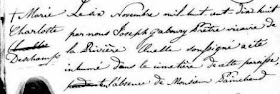 + Marie Le six Novembre mil huit cent dix huit
Charlotte par nous Joseph Gaboury Prêtre vicaire de
Deschamps la Rivière Ouelle soussigné a été
inhumé dans le cimetière de cette paroisse
en l'absence de Monsieur Painchaud